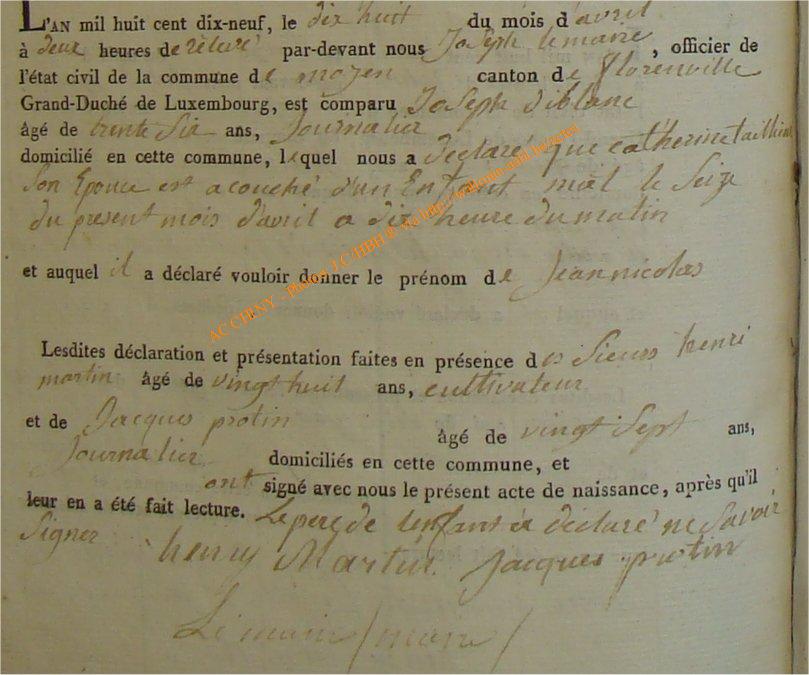 L'AN mil huit cent dix-neuf, le dix huit du mois d'avril
à deux heures de relevé par-devant nous Joseph lemaire, officier de
l'état civil de la commune de moyen canton de florenville
Grand-Duché de Luxembourg, est comparu Joseph diblanc
âgé de trente Six ans, Journalier
domicilié en cette commune, lequel nous a déclaré que catherine taillieu
Son Epouce est acouché d'un Enfant mâl le Seize
du present mois d'avril a dix heure du matin
et auquel il a déclaré vouloir donner le prénom de Jeannicolas
Lesdites déclaration et présentation faites en présence des Sieurs henri
martin âgé de vingt huit ans, cultivateur
et de Jacques protin âgé de vingt Sept ans,
Journalier domiciliés en cette commune, et
ont signé avec nous le présent acte de naissance, après qu'il
leur en a été fait lecture. Le pere de lenfant a déclaré ne Savoir
Signer henry Martin Jacques protin
Lemaire / maire /
AC CHINY - Photos J.C-HBH ® via